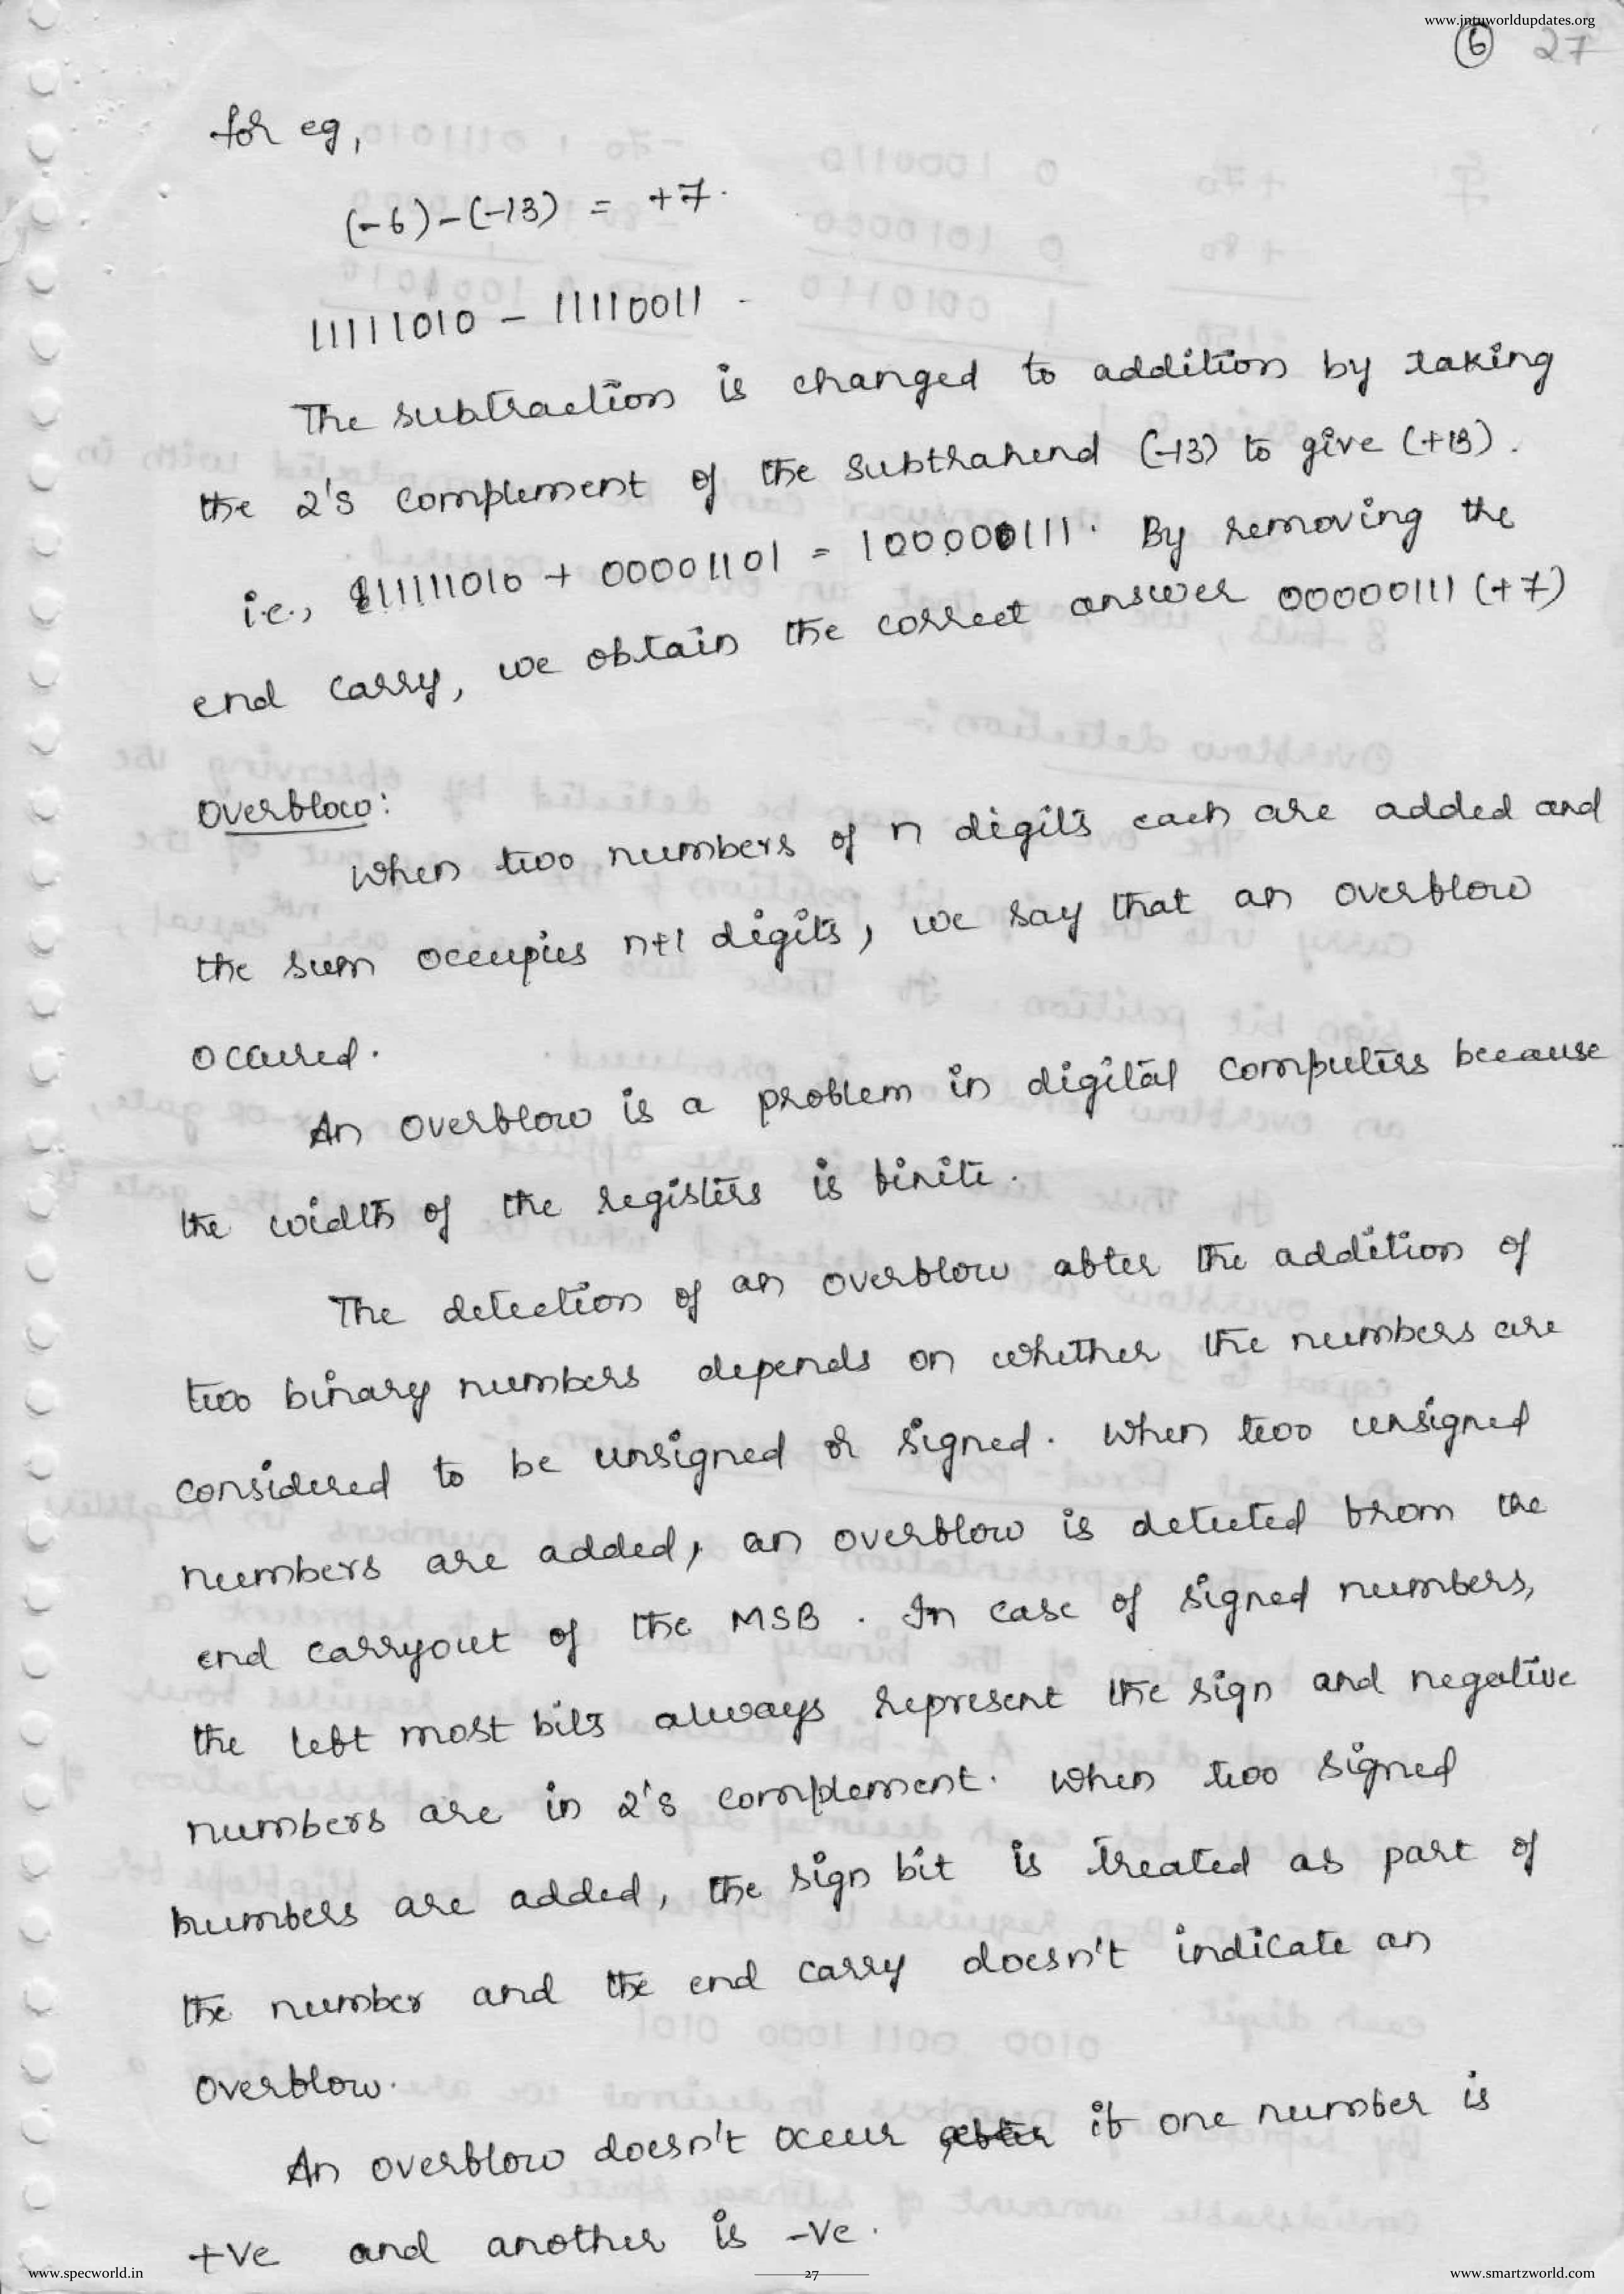 www.jntuworldupdates.org
6 27
for eg,
(-6)-(-13) = +7.
11111010 - 11110011
The subtraction is changed to addition by taking
the 2's complement of the subtrahend (-13) to give (+13).
i.e., 11111010 + 00001101 = 100000111. By removing the
end carry, we obtain the correct answer 00000111 (+7)
Overflow:
When two numbers of n digits each are added and
the sum occupies n+1 digits, we say that an overflow
occured.
An overflow is a problem in digital computers because
the width of the registers is finite.
The detection of an overflow after the addition of
two binary numbers depends on whether the numbers are
considered to be unsigned or signed. When two unsigned
numbers are added, an overflow is detected from the
end carryout of the MSB. In case of signed numbers,
the left most bits always represent the sign and negative
numbers are in 2's complement. When two signed
numbers are added, the sign bit is treated as part of
the number and the end carry doesn't indicate an
overflow.
An overflow doesn't occur if one number is
+ve and another is -ve.
www.specworld.in
27
www.smartzworld.com